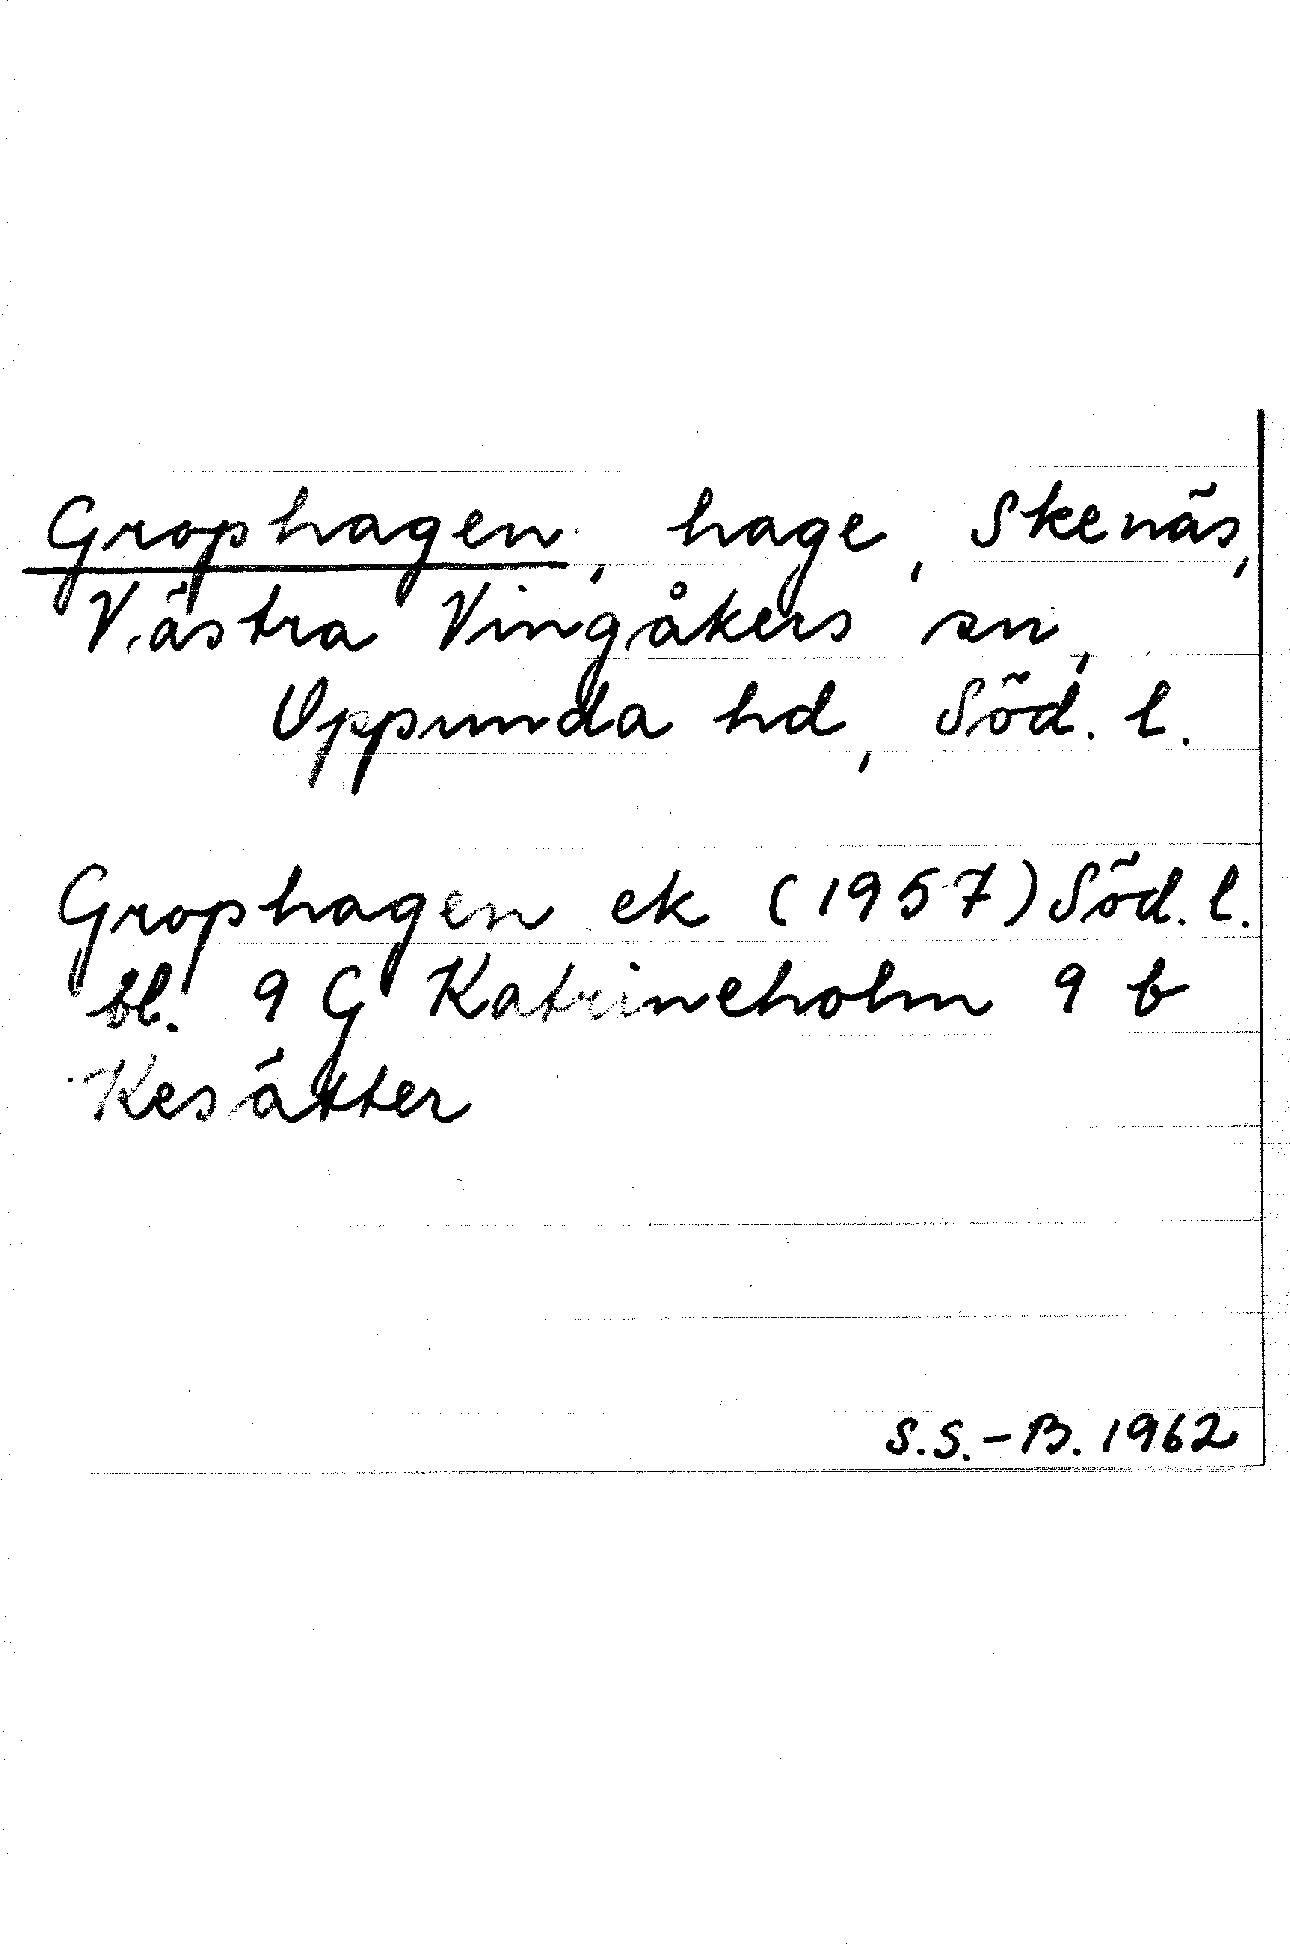 Grophagen, hage, Skenäs,
Västra Vingåkers sn,
Oppunda hd, Söd. l.
Grophagen ek (1957) Söd. l.
bl. 9 G Katrineholm 9 b
Kesätter
S.S.-B. 1962